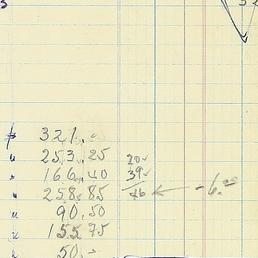 321.-
" 253.25
" 166.40
" 258.85
" 90.50
" 155.75
" 50.-
20
39
- 6.00